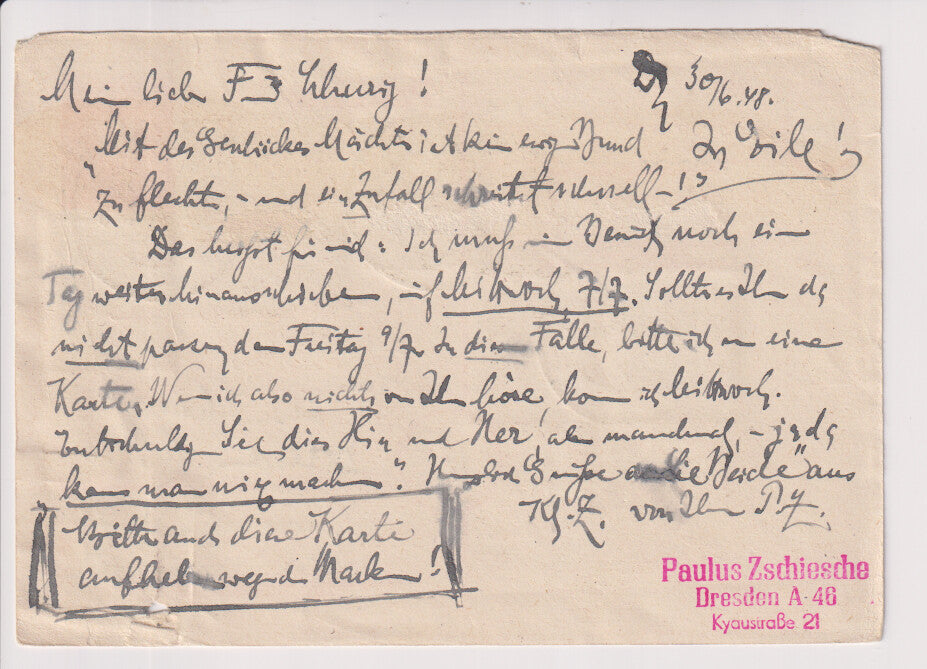 Mein lieber F Schurig! 30/6.48.
"Mit des Geschickes Mächten ist kein ewger Bund In Eile!
zu flechten, - und ein Zufall schreitet schnell -!"
Das heißt für mich: Ich muß m Besuch noch ein
Tag weiter hinausschieben, auf Mittwoch, 7/7. Sollte es Ihn da
nicht passen, dann Freitag 9/7. In diesem Falle, bitte ich um eine
Karte. Wenn ich also nichts von Ihn höre, komm ich Mittwoch.
Entschuldigen Sie, dies Hin und Her, aber manchmal, - ja, da
kann man nix machen". Grüße an die Beide aus
Kl. Z. von Ihrem P. Z.
Bitte auch diese Karte
aufheben wegen der Marken!
Paulus Zschiesche
Dresden A-46
Kyaustraße 21